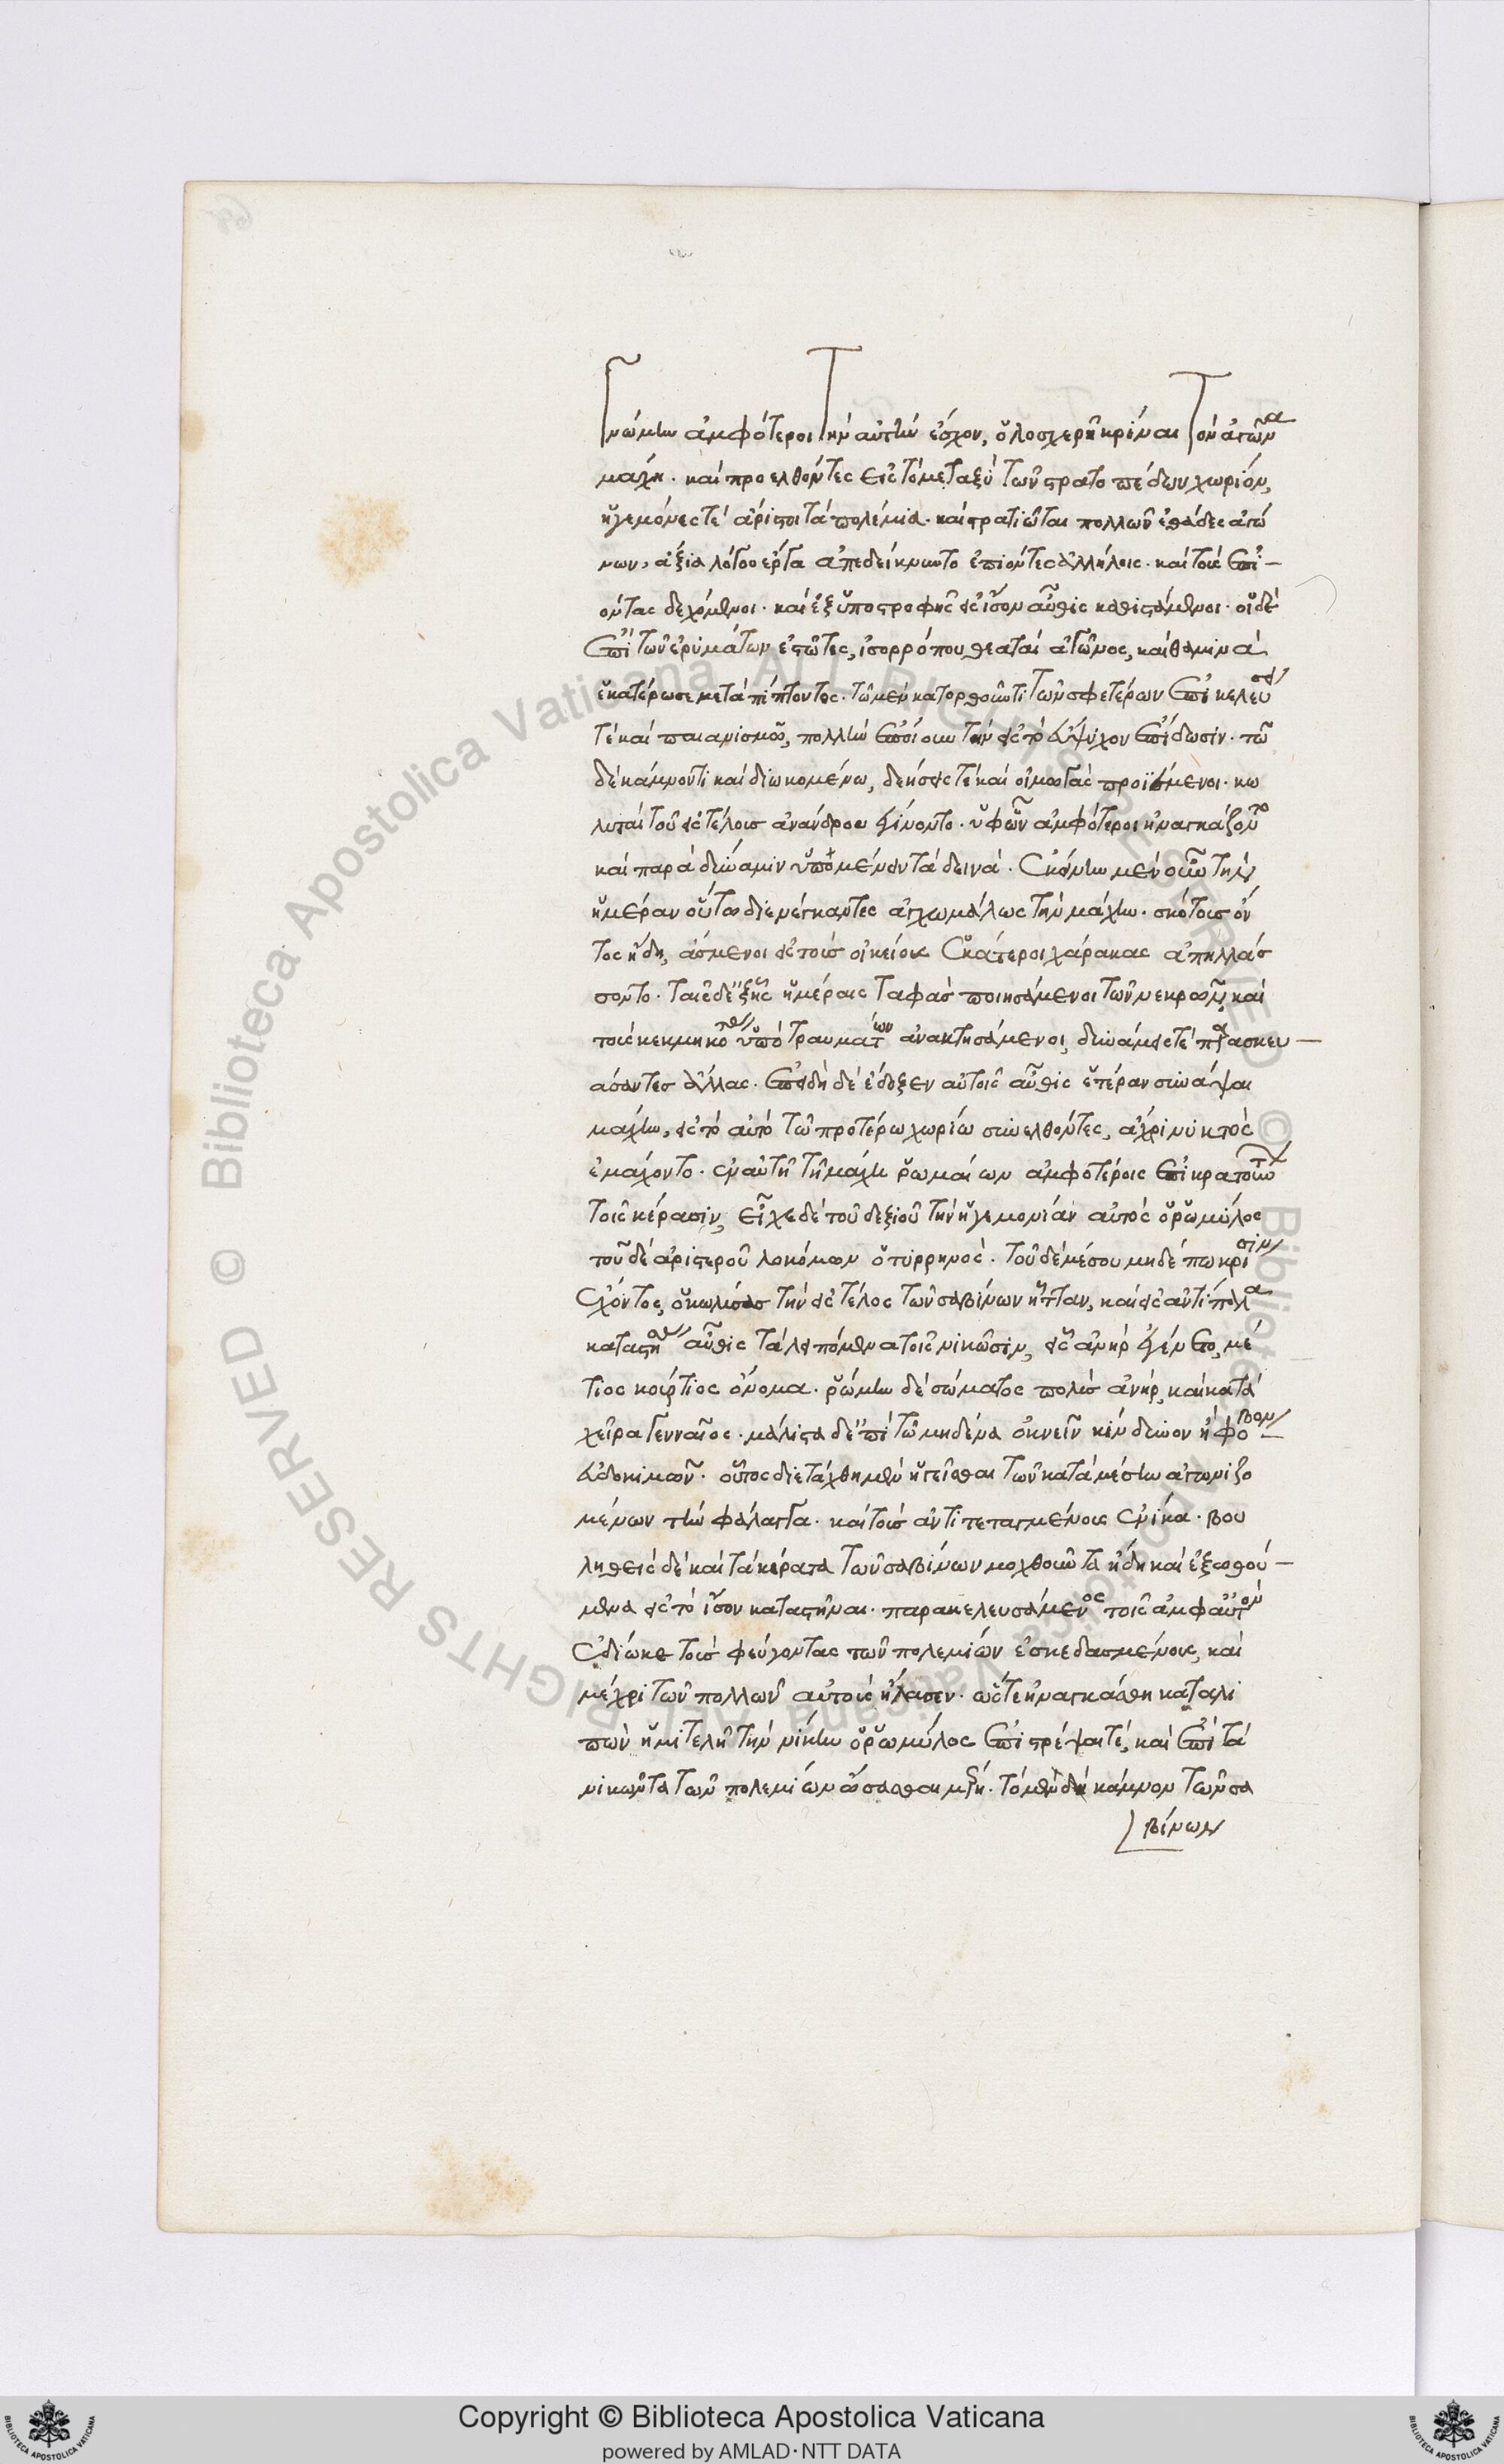 γνώμην ἀμφότεροι τὴν αὐτὴν ἔσχον, ὁλοσχερῆ κρῖναι τὸν ἀγῶνα
μάχη. καὶ προελθόντες εἰς τὸ μεταξὺ τῶν στρατοπέδων χωρίον,
ἡγεμόνες τὲ ἄριστοι τὰ πολέμια. καὶ στρατιῶται πολλῶν ἐθάδες ἀγώ
νων, ἄξια λόγου ἔργα ἀπεδείκνυντο ἐπιόντες ἀλλήλοις. καὶ τοὺς ἐπι-
όντας δεχόμενοι. καὶ ἐξ ὑποστροφῆς εἰς ἴσον αὖθις καθιστάμενοι. οἱ δὲ
ἐπὶ τῶν ἐρυμάτων ἑστῶτες, ἰσορρόπου θεαταὶ ἀγῶνος, καὶ θαμινὰ
ἑκατέρωσε μεταπίπτοντος. τῷ μὲν κατορθοῦντι τῶν σφετέρων ἐπικελεύσει
τὲ καὶ παιανισμῷ, πολλὴν ἐποίουν τὴν εἰς τὸ εὔψυχον ἐπίδωσιν. τῷ
δὲ κάμνοντι καὶ διωκομένω, δεήσεις τὲ καὶ οἰμωγὰς προϊέμενοι. κω
λυταὶ τοῦ εἰς τέλους ἀνάνδρου ἐγίνοντο. ὑφ' ὧν ἀμφότεροι ἠναγκάζοντο
καὶ παρὰ δύναμιν ὑπομένειν τὰ δεινά. ἐκείνην μὲν οὖν τὴν
ἡμέραν οὕτω διενέγκαντες ἀγχωμάλως τὴν μάχην. σκότους ὄν
τος ἤδη, ἄσμενοι εἰς τοὺς οἰκείους ἑκάτεροι χάρακας ἀπηλλάσ
σοντο. ταῖς δ' ἑξῆς ἡμέραις ταφὰς ποιησάμενοι τῶν νεκρῶν, καὶ
τοὺς κεκμηκότας ὑπὸ τραυμάτων ἀνακτησάμενοι, δυνάμεις τὲ παρασκευ-
άσαντες ἄλλας. ἐπειδὴ δὲ ἔδοξεν αὐτοῖς αὖθις ἑτέραν συνάψαι
μάχην, εἰς τὸ αὐτὸ τῷ προτέρω χωρίω συνελθόντες, ἄχρι νυκτὸς
ἐμάχοντο. ἐν αὐτῇ τῇ μάχῃ ῥωμαίων ἀμφοτέροις ἐπικρατούντων
τοῖς κέρασιν, εἶχε δὲ τοῦ δεξιοῦ τὴν ἡγεμονίαν αὐτὸς ὁ ῥωμύλος
τοῦ δὲ ἀριστεροῦ λοκόμων ὁ τυρρηνός. τοῦ δὲ μέσου μηδέπω κρίσιν
ἔχόντος, ὁ κωλύσας τὴν εἰς τέλος τῶν σαβίνων ἧτταν, καὶ εἰς ἀντίπαλα
καταστήσας αὖθις τὰ λειπόμενα τοῖς νικῶσιν, εἷς ἀνὴρ ἐγένετο, μέ
τιος κούρτιος ὄνομα. ῥώμην δὲ σώματος πολὺς ἀνήρ, καὶ κατὰ
χεῖρα γενναῖος. μάλιστα δ' ἐπὶ τῷ μηδένα ὀκνεῖν κίνδυνον ἢ φόβον
εὐδοκιμῶν. οὗτος διετάχθη μὲν ἡγεῖσθαι τῶν κατὰ μέσην ἀγωνιζο
μένων τὴν φάλαγγα. καὶ τοὺς ἀντιτεταγμένους ἐνίκα. βου
ληθεὶς δὲ καὶ τὰ κέρατα τῶν σαβίνων μοχθοῦντα ἤδη καὶ ἐξωθού-
μενα εἰς τὸ ἴσον καταστῆναι. παρακελευσάμενος τοῖς ἀμφ' αὐτὸν
ἐδίωκε τοὺς φεύγοντας τῶν πολεμίων ἐσκεδασμένους, καὶ
μέχρι τῶν πολλῶν αὐτοὺς ἤλασεν. ὥστε ἠναγκάσθη καταλι
πὼν ἡμιτελῆ τὴν νίκην ὁ ῥωμύλος ἐπιστρέψαι τέ, καὶ ἐπὶ τὰ
νικῶντα τῶν πολεμίων ὤσασθαι μέρη. τὸ μὲν δὴ κάμνον τῶν σα
βίνων
Copyright © Biblioteca Apostolica Vaticana
powered by AMLAD·NTT DATA